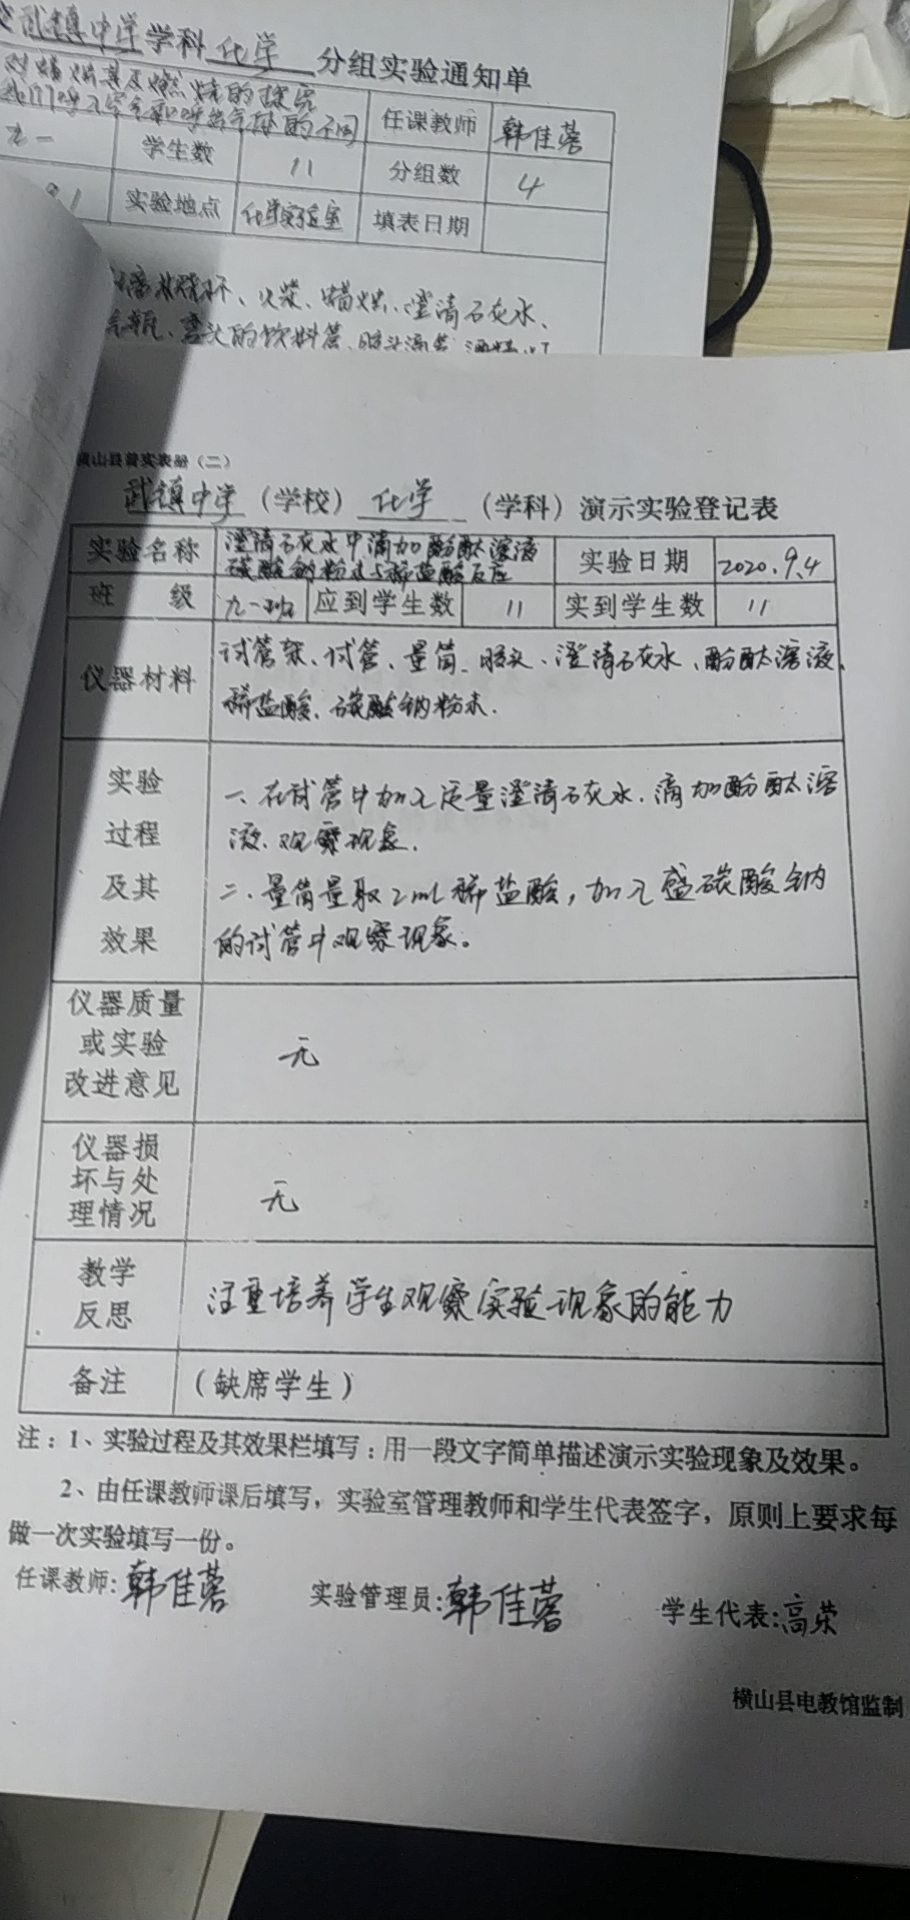 武镇中学学科 化学 分组实验通知单
对蜡烛及其燃烧的探究
我们吸入空气和呼出气体的不同
任课教师 韩佳蓉
九一 学生数 11 分组数 4
实验地点 化学实验室 填表日期
烧杯、火柴、蜡烛、澄清石灰水、
弯头的饮料管、胶头滴管
横山县普实表册（二）
武镇中学（学校） 化学 （学科）演示实验登记表
实验名称 澄清石灰水中滴加酚酞溶液 碳酸钠粉末与稀盐酸反应 实验日期 2020.9.4
班 级 九一班 应到学生数 11 实到学生数 11
仪器材料 试管架、试管、量筒、胶头、澄清石灰水、酚酞溶液、
稀盐酸、碳酸钠粉末.
实验
过程
及其
效果
一、在试管中加入定量澄清石灰水.滴加酚酞溶
液.观察现象.
二、量筒量取2ml稀盐酸，加入盛碳酸钠
的试管中观察现象。
仪器质量
或实验
改进意见
无
仪器损
坏与处
理情况
无
教学
反思
注重培养学生观察实验现象的能力
备注 （缺席学生）
注：1、实验过程及其效果栏填写：用一段文字简单描述演示实验现象及效果。
2、由任课教师课后填写，实验室管理教师和学生代表签字，原则上要求每
做一次实验填写一份。
任课教师:韩佳蓉 实验管理员:韩佳蓉 学生代表:高荣
横山县电教馆监制